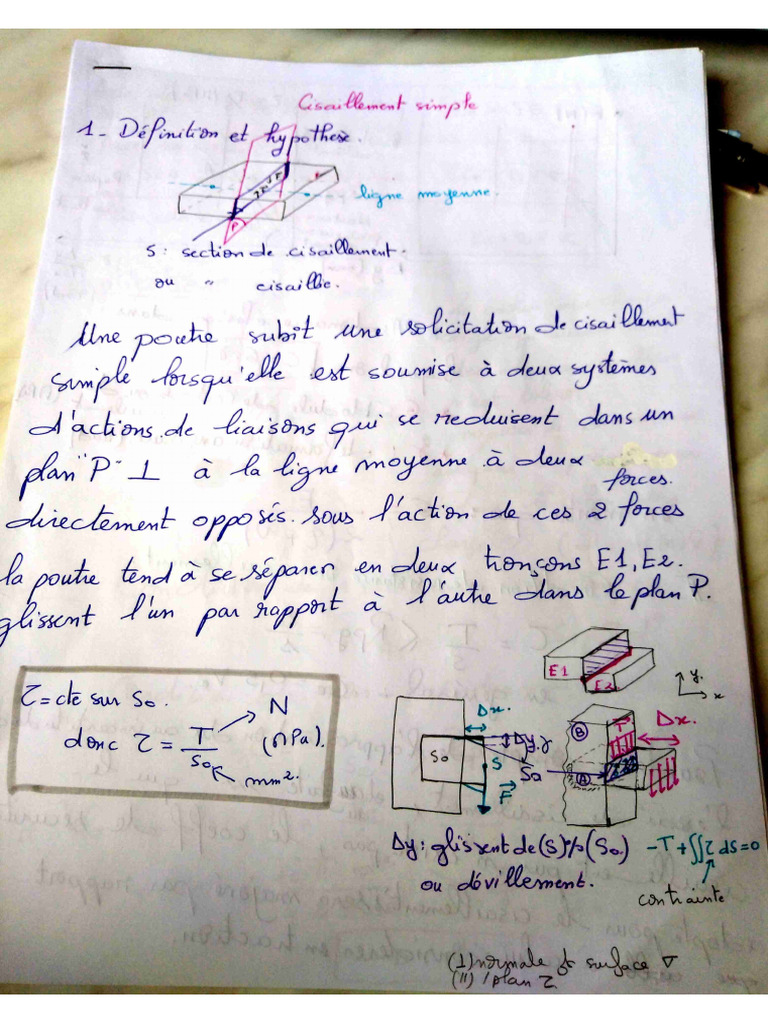 Cisaillement simple
1 - Définition et hypothèse.
ligne moyenne.
P
S : section de cisaillement.
ou " cisaillie.
Une poutre subit une solicitation de cisaillement
simple lorsqu'elle est soumise à deux systèmes
d'actions de liaisons qui se reduisent dans un
plan "P" ⊥ à la ligne moyenne à deux
forces.
directement opposés. sous l'action de ces 2 forces
la poutre tend à se séparer en deux tronçons E1, E2.
glissent l'un par rapport à l'autre dans le plan P.
E1
E2
y.
x
τ = cte sur S0.
donc τ = T/S0 (MPa).
N
mm².
Δx.
Δy
S0
S
F
S0
B
A
T
Δx.
Δy : glissent de (S) % (S0)
ou dévillement.
-T + ∬ τ ds = 0
contrainte
(⊥) normale surface σ
(//) / plan τ